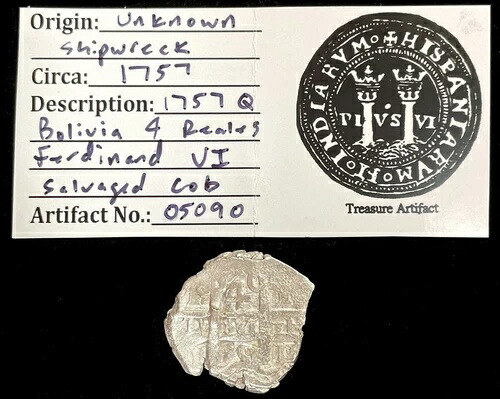 Origin: Unknown
Shipwreck
Circa: 1757
Description: 1757 Q
Bolivia 4 Reales
Ferdinand VI
Salvaged Cob
Artifact No.: 05090
INDIARVM HISPANIARVM
PLVS VI
Treasure Artifact
4